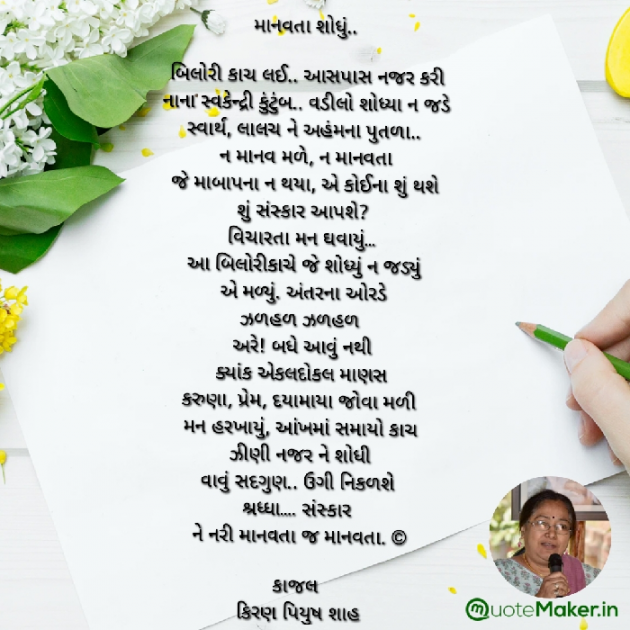 માનવતા શોધું..
બિલોરી કાચ લઈ.. આસપાસ નજર કરી
નાના સ્વકેન્દ્રી કુંટુંબ.. વડીલો શોધ્યા ન જડે
સ્વાર્થ, લાલચ ને અહંમના પુતળા..
ન માનવ મળે, ન માનવતા
જે માબાપના ન થયા, એ કોઈના શું થશે
શું સંસ્કાર આપશે?
વિચારતા મન ઘવાયું...
આ બિલોરીકાચે જે શોધ્યું ન જડ્યું
એ મળ્યું. અંતરના ઓરડે
ઝળહળ ઝળહળ
અરે! બધે આવું નથી
ક્યાંક એકલદોકલ માણસ
કરુણા, પ્રેમ, દયામાયા જોવા મળી
મન હરખાયું, આંખમાં સમાયો કાચ
ઝીણી નજર ને શોધી
વાવું સદગુણ.. ઉગી નિકળશે
શ્રધ્ધા.... સંસ્કાર
ને નરી માનવતા જ માનવતા. ©
કાજલ
કિરણ પિયુષ શાહ
QuoteMaker.in